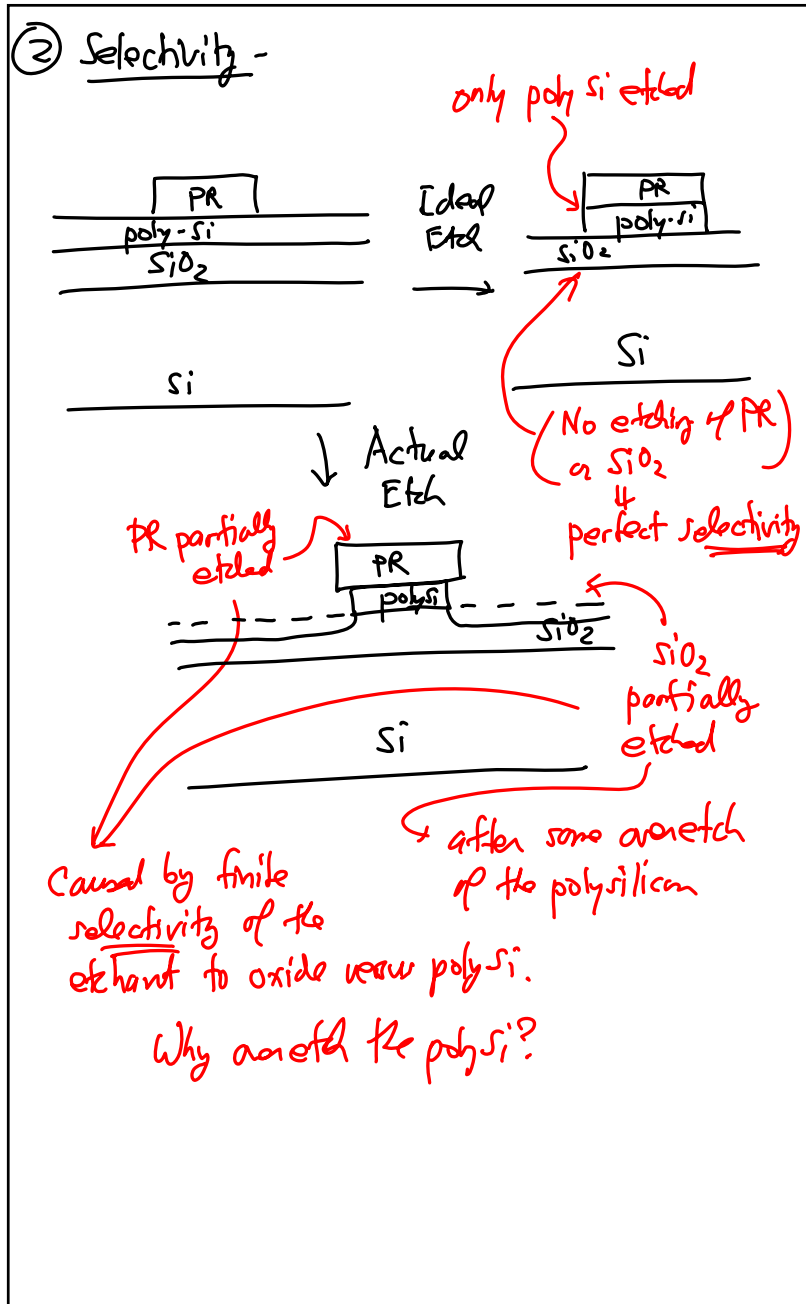 ② Selectivity -
only poly si etched
PR
poly-Si
SiO2
Si
Ideal
Etch
PR
poly-si
SiO2
Si
(No etching of PR
or SiO2)
⇓
perfect selectivity
Actual
Etch
PR partially
etched
PR
polysi
SiO2
Si
SiO2
partially
etched
after some overetch
of the polysilicon
Caused by finite
selectivity of the
etchant to oxide versus poly si.
Why overetch the poly si?